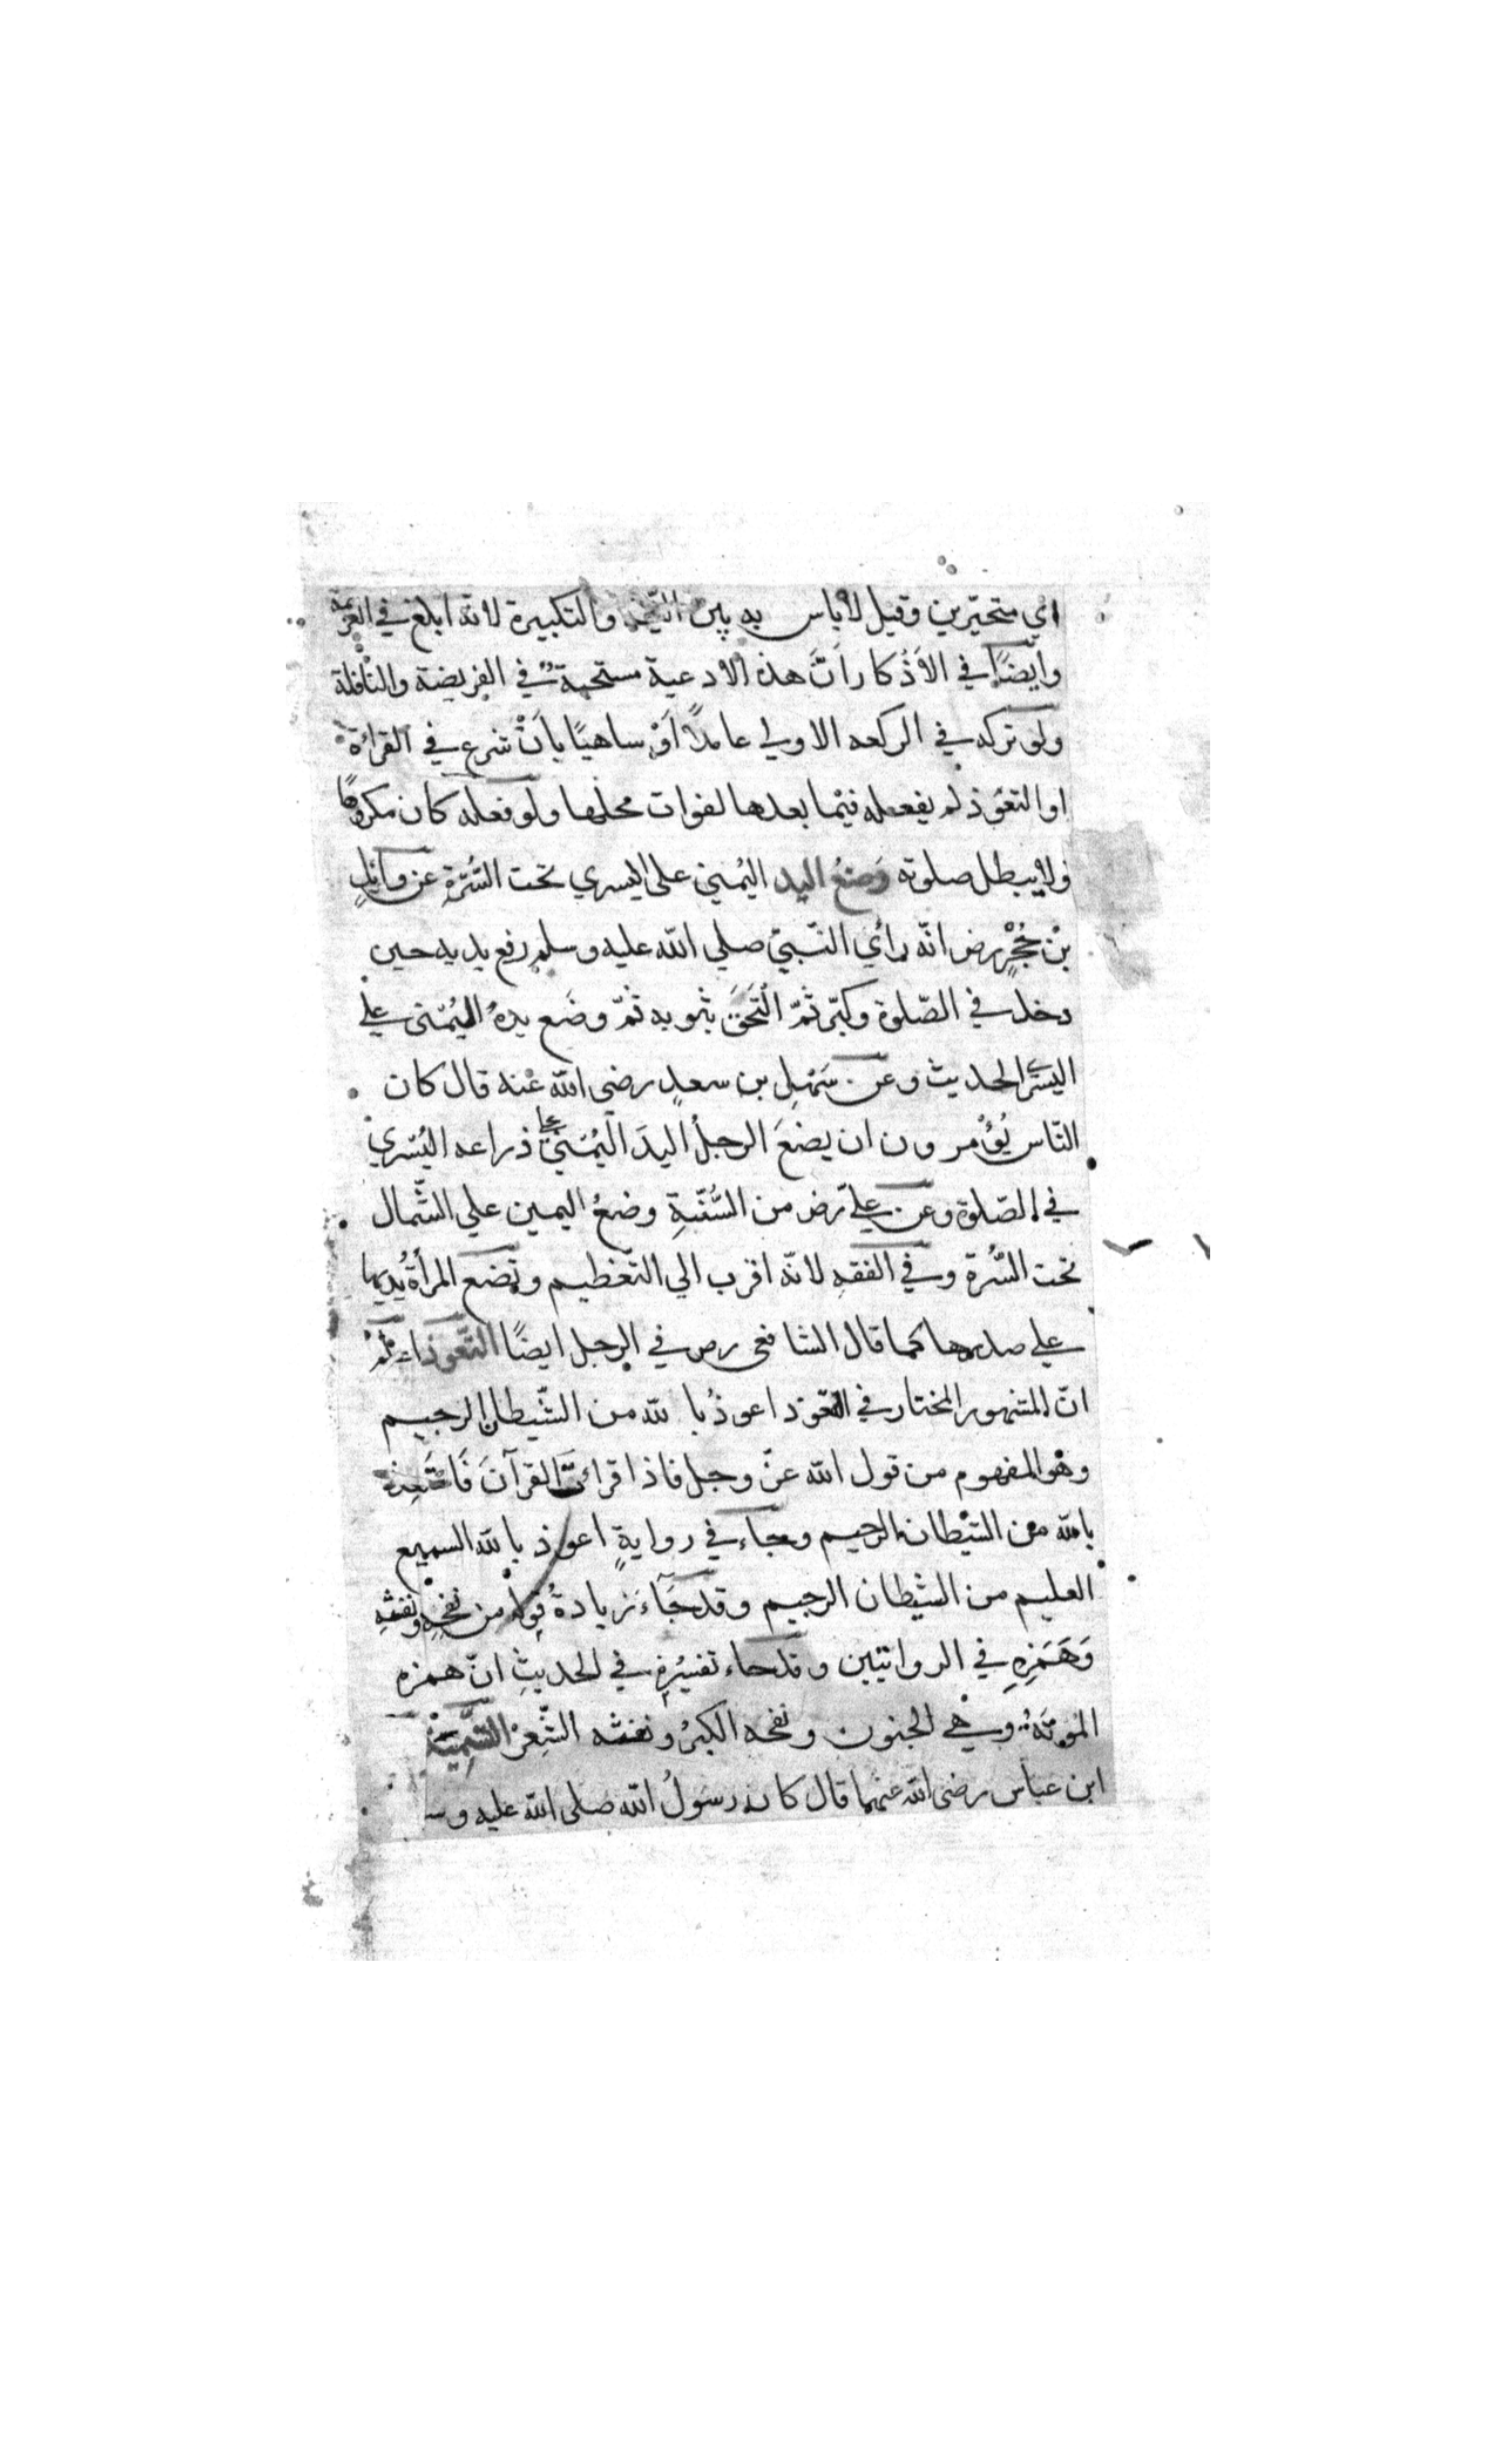 اي متحيّرين وقيل لا باس به بين النيّة والتكبيرة لانه ابلغ في العزيمة
وايضًا في الاَذْكار اَنَّ هذه الادعية مستحبةٌ في الفريضة والنّافلة
ولو تركه في الركعه الاولي عامدًا اَوْ ساهيًا بِاَنْ شرع في القراءة
او التعوّذ لم يفعله فيما بعدها لفوات محلها ولو فعله كان مكروهًا
ولا يبطل صلوته وَضعُ اليد اليُمني على اليسري تحت السُّرّةِ عن وائلِ
بْن حُجْرٍ رض انّه رأي النّبيّ صلي الله عليه وسلم رفع يديه حين
دخل في الصّلوة وكبّر ثمّ الْتَحَفَ بثوبه ثمّ وضَع يدهُ اليُمْنى علي
اليسْري الحديث وعن سَهْلِ بن سعدٍ رضى الله عنه قال كان
النّاس يُؤْمرون ان يضعَ الرجلُ اليدَ اليُمْنيٰ علي ذراعه اليُسْري
في الصّلوة وعن عليّ رض من السُّنّةِ وضعُ اليمين علي الشّمال
تحت السُّرة وفي الفقهِ لانّه اقرب الي التّعظيم وتضع المرأةُ يديها
علي صدرها كما قال الشافعى رض في الرجل ايضًا التّعوذ اعلمْ
انّ المشهور المختار في التّعوّذ اعوذُ بالله من الشّيطان الرجيم
وهو المفهوم من قول الله عزّ وجل فاذا قرائتَ القرآنَ فَاسْتَعِذْ
بالله من الشّيْطان الرجيم وجاء في روايةٍ اعوذ بالله السميع
العليم من الشيْطان الرجيم وقد جَآءَ زيادةُ قوله من نفخِهِ ونفثهِ
وَهَمَزِهِ في الروايتين وقد جاء تفسيرُهٗ في الحديثِ انّ همزه
المُوْتَةُ وهي الجنون ونفخه الكبرُ ونفثه الشِّعْرُ التَّسْمِيَةُ
ابن عباس رضى الله عنهما قال كان رسولُ الله صلى الله عليه وس